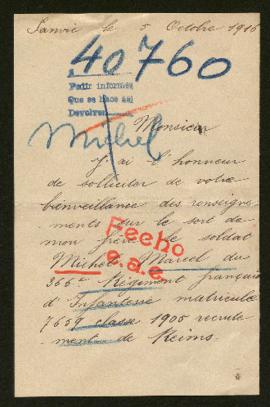 Sanvic le 5 Octobre 1916
40760
Pedir informes
Que se hace así
Devolver
Monsieur
Michel
J'ai l'honneur
de solliciter de votre
bienveillance des renseigne
ments sur le sort de
mon frère le soldat
Fecho
Michel Marcel du
e.a.e
366e Régiment français
d'Infanterie matricule
7659 classe 1905 recrute
ment de Reims.